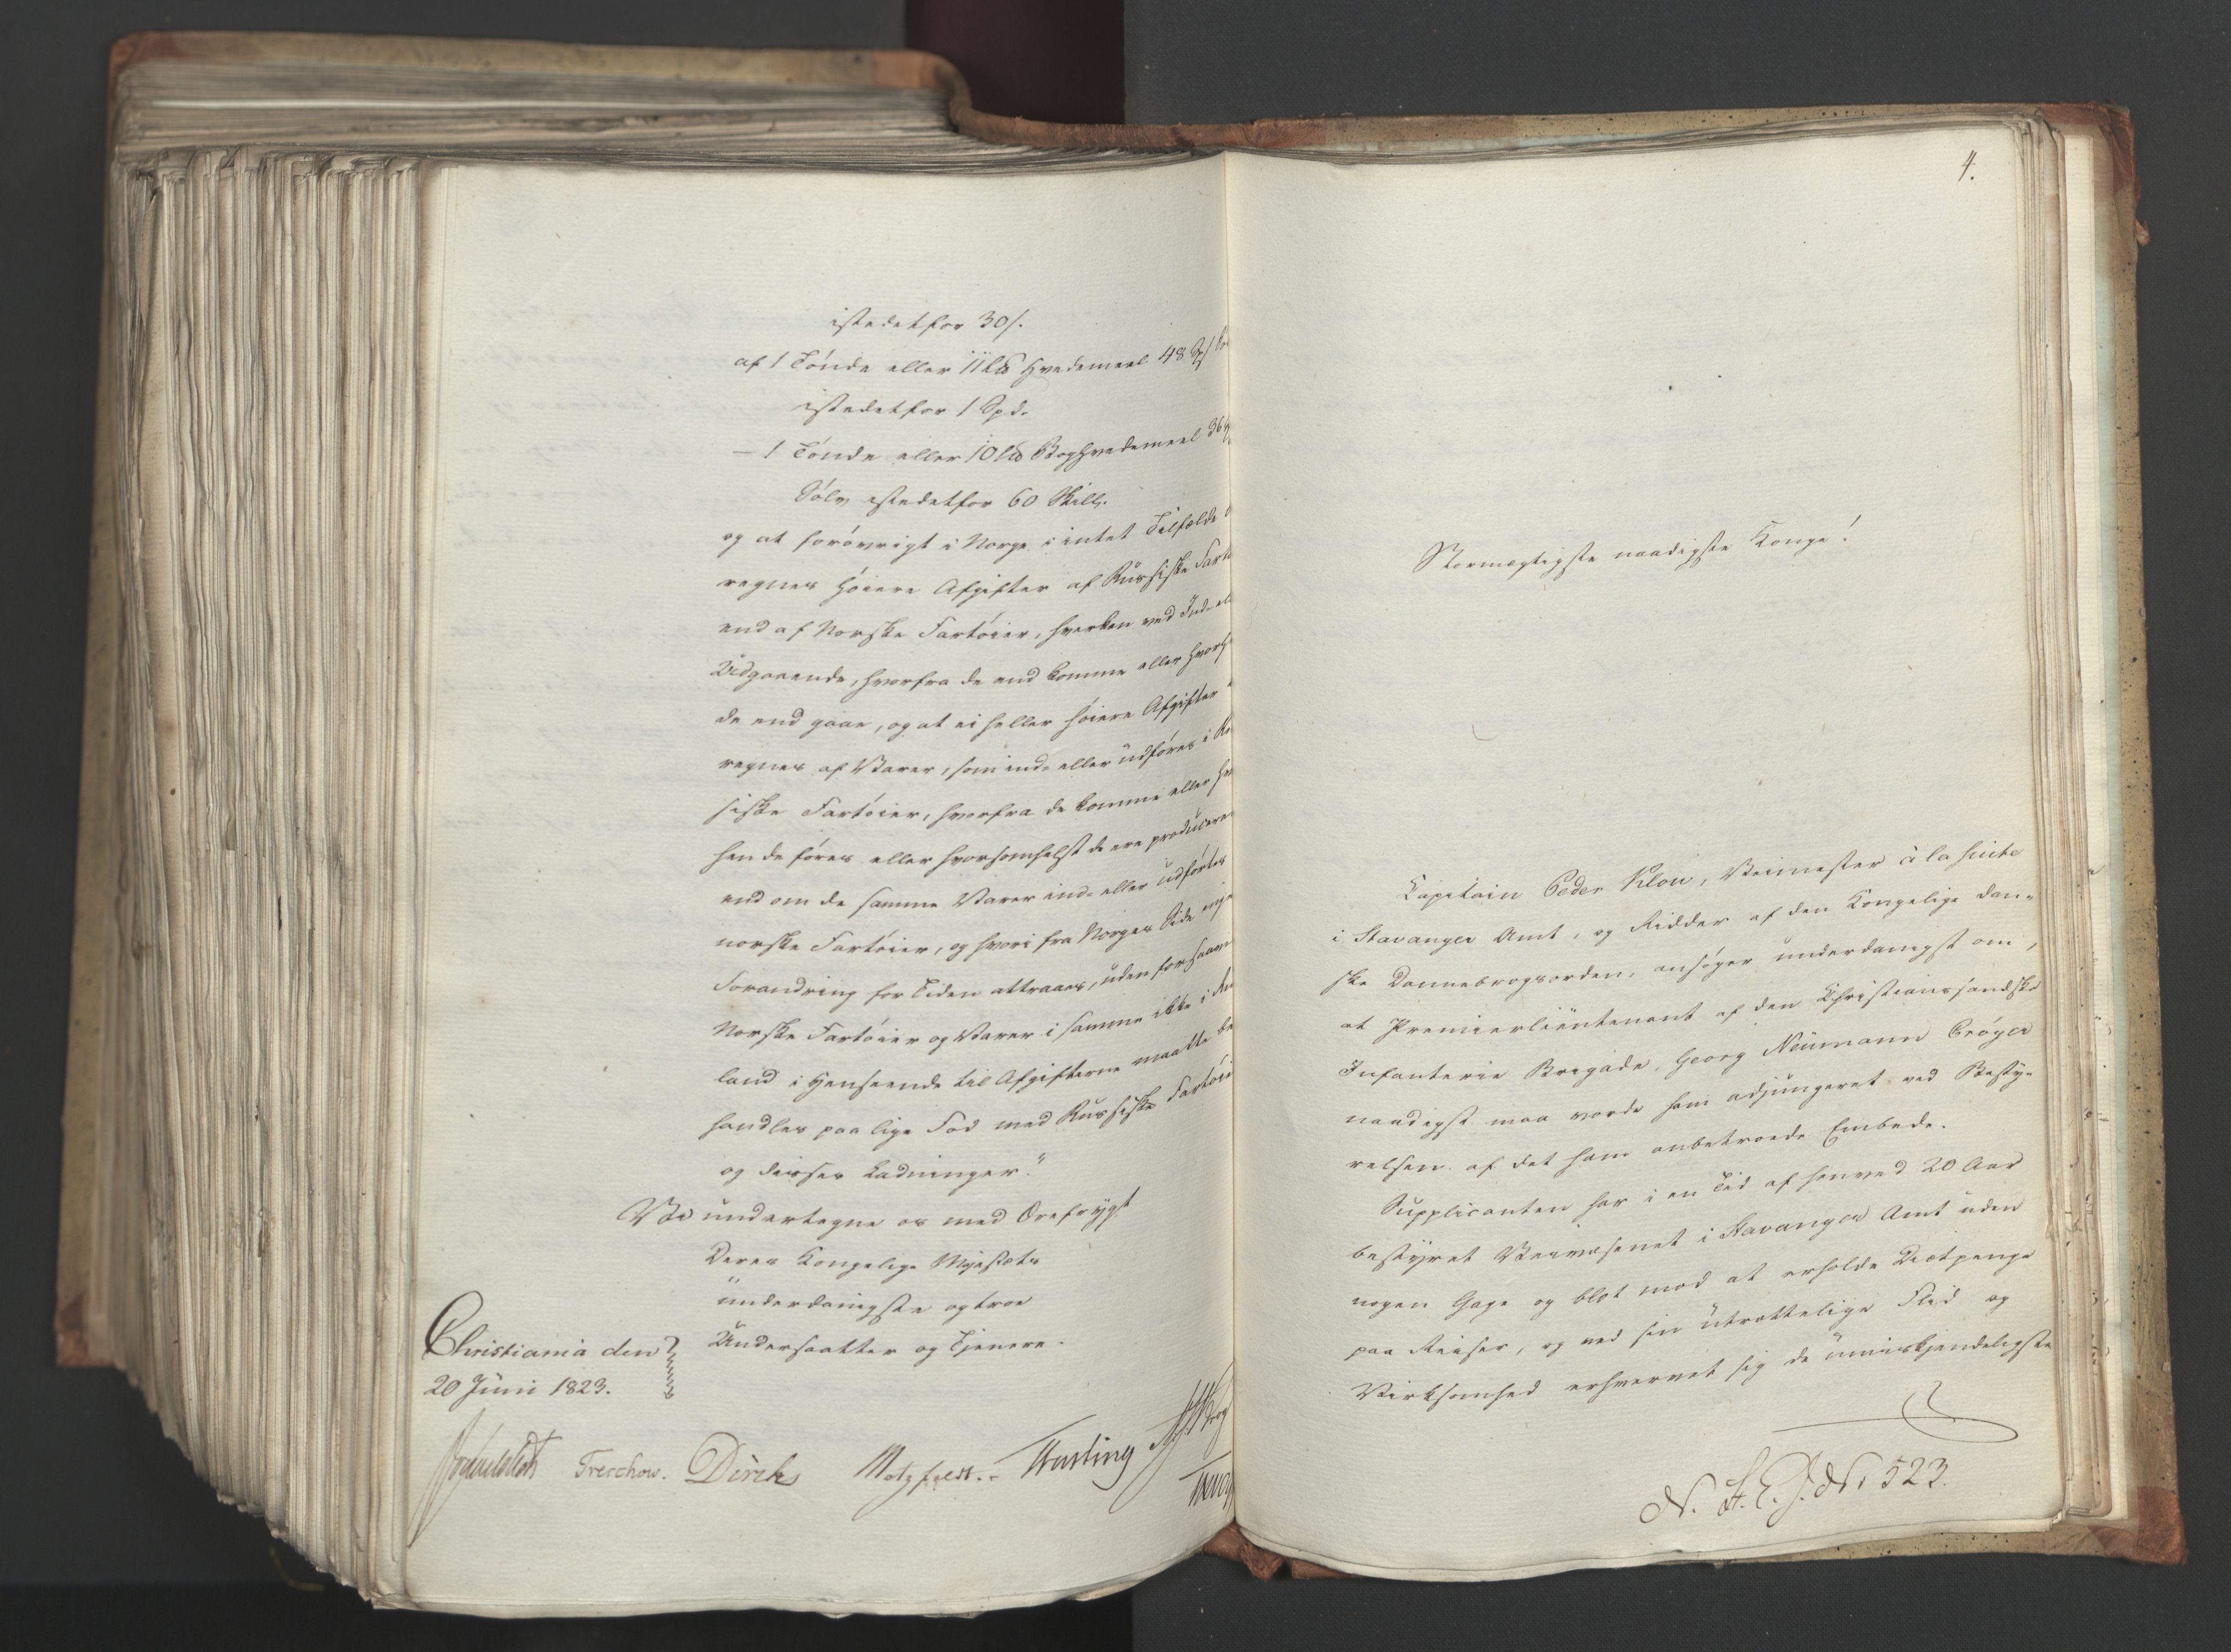 istedetfor 30/.
af 1 Tønde eller 11 L℔ Hvedemeel 48
istedetfor 1 Spd.
— 1 Tønde eller 10 L℔ Boghvedemeel 36
Sølv istedetfor 60 Skill.
og at forøvrigt i Norge i intet Tilfælde
regnes høiere Afgifter af Russiske Fart
end af Norske Fartøier, hverken ved Ind- el
Udgaaende, hvorfra de end komme eller hvorh
de end gaae, og at ei heller høiere Afgifter
regnes af Varer, som ind- eller udføres i Rus
siske Fartøier, hvorfra de komme eller hvor
hen de føres eller hvorsomhelst de ere producere
end om de samme Varer ind- eller udførtes
norske Fartøier, og hvori fra Norges Side
Forandring for Tiden attraaes, uden forsaavi
Norske Fartøier og Varer i samme ikke i Rus
land i Henseende til Afgifterne maatte be
handles paa lige Fod med Russiske Fartøie
og disses Ladninger."
Vi undertegne os med Ærefrygt
Deres Kongelige Majestæts
underdanigste og troe
Undersaatter og Tjenere.
Christiania den
20 Juni 1823.
Treschow. Diriks Motzfeldt. Fasting
4.
Stormægtigste naadigste Konge!
Kapitain Peder Klou, Veimester à la suite
i Stavanger Amt, og Ridder af den Kongelige dan-
ske Dannebrogsorden, ansøger underdanigst om,
at Premierlieutenant af den Christianssandske
Infanterie Brigade, Georg Neumann Crøger
naadigst maa vorde ham adjungeret ved Besty-
relsen af det ham anbetroede Embede.
Supplicanten har i en Tid af henved 20 Aar
bestyret Veivæsenet i Stavanger Amt uden
nogen Gage og blot mod at erholde Diætpenge
paa Reiser, og ved sin utrættelige Flid og
Virksomhed erhvervet sig de umiskjendeligste
N. St. E. J. No 523.